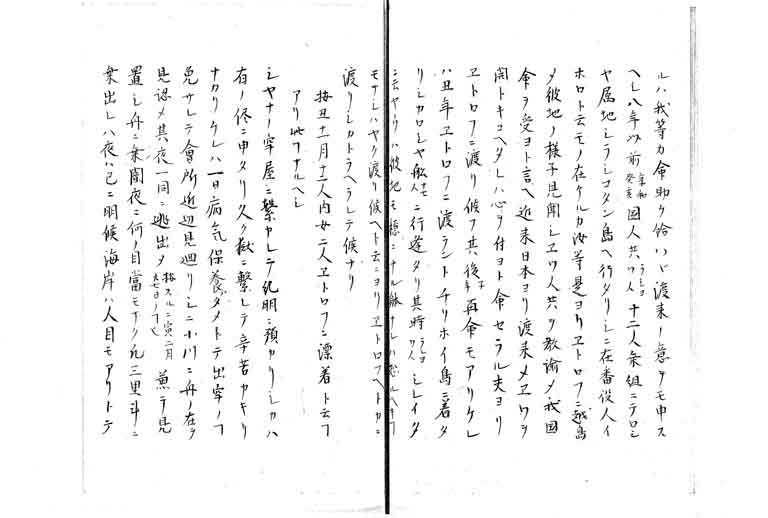 ルハ我等カ命助ケ給ハヽ渡来ノ意ヲモ申ス
ヘシ八年以前 享和癸亥 国人共ラショワ人十二人乗組ニテロシ
ヤ属地シラシコタン島ヘ行タリシニ在番役人イ
ホロト云モノ在ケルカ汝等是ヨリヱトロフニ越島
メ彼地ノ様子見聞シヱツ人共ヲ教諭メ我国
命ヲ受ヨト言ヘ近来日本ヨリ渡来メヱワヲ
開トキコヘタレハ心ヲ付ヨト命セラル夫ヨリ
ヱトロフニ渡リ候フ其後子年再命モアリケレ
ハ丑年ヱトロフニ渡ラントチリホイ島ニ着タ
リシカロシヤ船ニ行逢タリ其時ラショワ人シレイタ
ニ云ヤウハ彼地モ穏ニナル
モナシハヤク渡リ候ヘト云ニヨリヱトロフヘトカニ
渡リシカトラヘラレテ候ナリ
按丑十一月十二人内女二人ヱトロフニ漂着ト云フ
アリ此フナルヘシ
シヤナノ牢屋ニ繋カレテ糺明ニ預カリシカハ
有ノ侭ニ申タリ久ク獄ニ繋レテ辛苦カキリ
ナカリケレハ一日病気保養ダメトテ出牢ノフ
免サレテ會所近辺見廻リシニ小川ニ舟ノ在ヲ
見認メ其夜一同ニ逃出タ 按スルニ寅二月 兼テ見
置シ舟ニ乗闇夜ニ何ノ目當モナク凡三里斗ニ
乗出シハ夜ハ已ニ明候海岸ハ人目モアリトテ